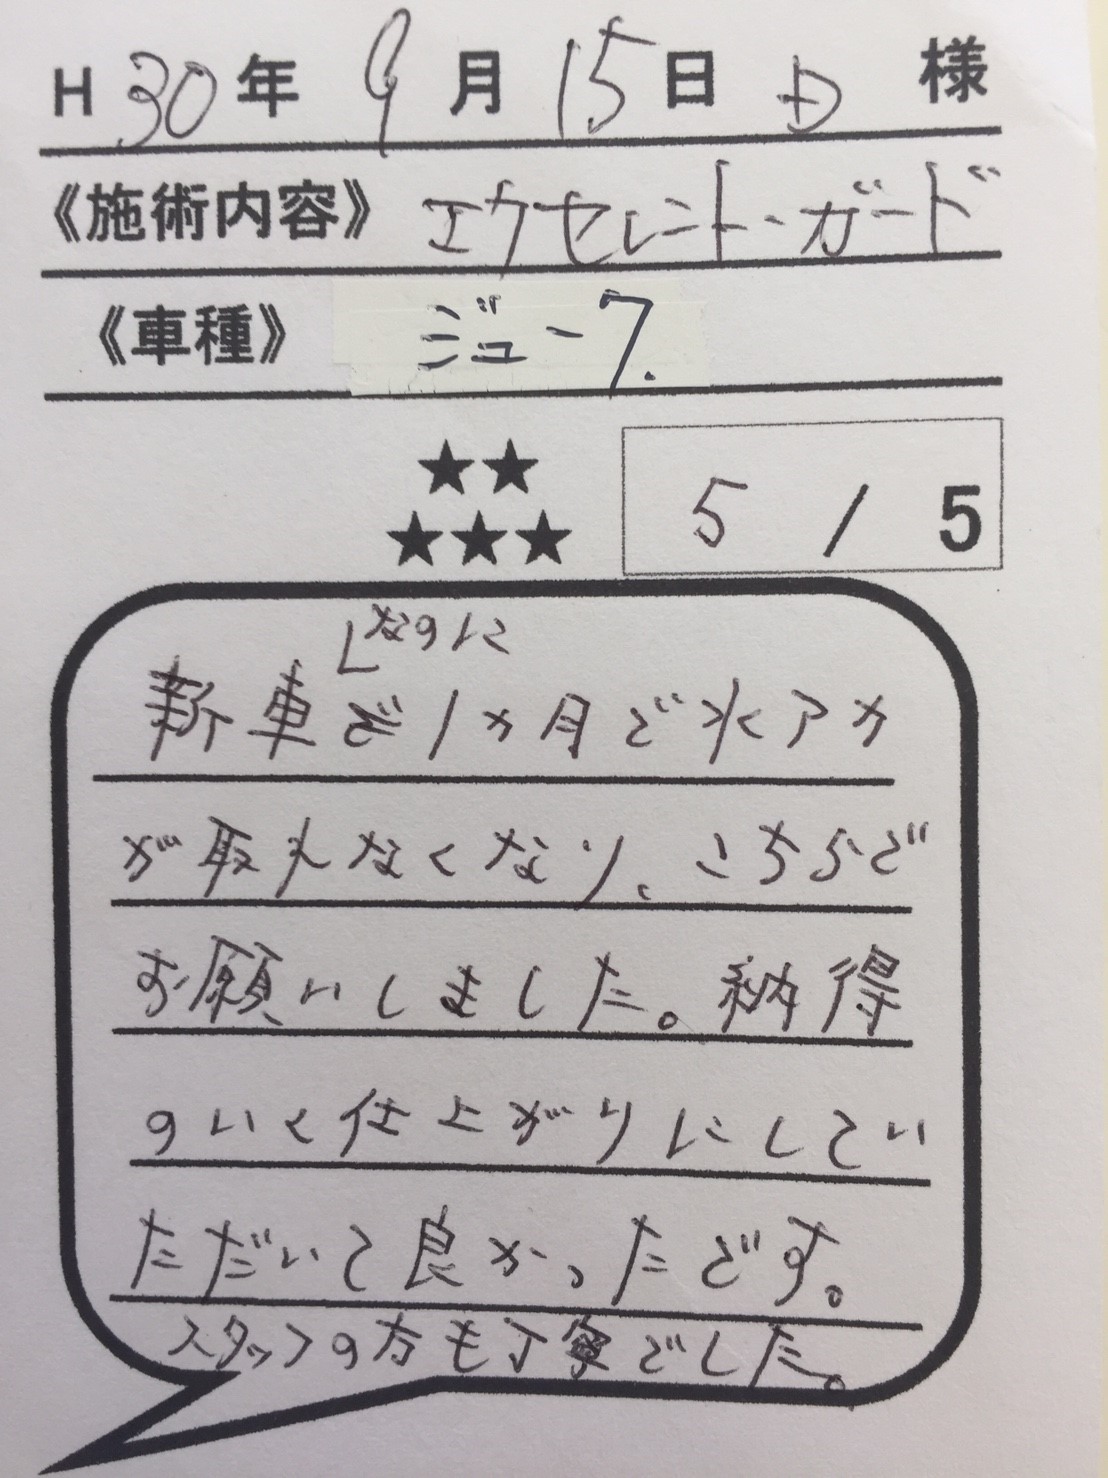 H 30年 9月 15日 D 様
《施術内容》 エクセレント・ガード
《車種》 ジューク.
★★
★★★ 5 / 5
なのに
新車で1カ月で水アカ
が取れなくなり、こちらで
お願いしました。納得
のいく仕上がりにしてい
ただいて良かったです。
スタッフの方も丁寧でした。